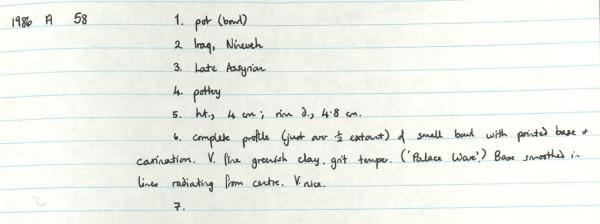 1986 A 58 1. pot (bowl)
2 Iraq, Nineveh
3. Late Assyrian
4. pottery
5. ht., 4 cm; rim d., 4.8 cm.
6. complete profile (just over ½ extant) of small bowl with pointed base &
carination. V. fine greenish clay, grit temper. ('Palace Ware'.) Base smoothed in
lines radiating from centre. V. nice.
7.